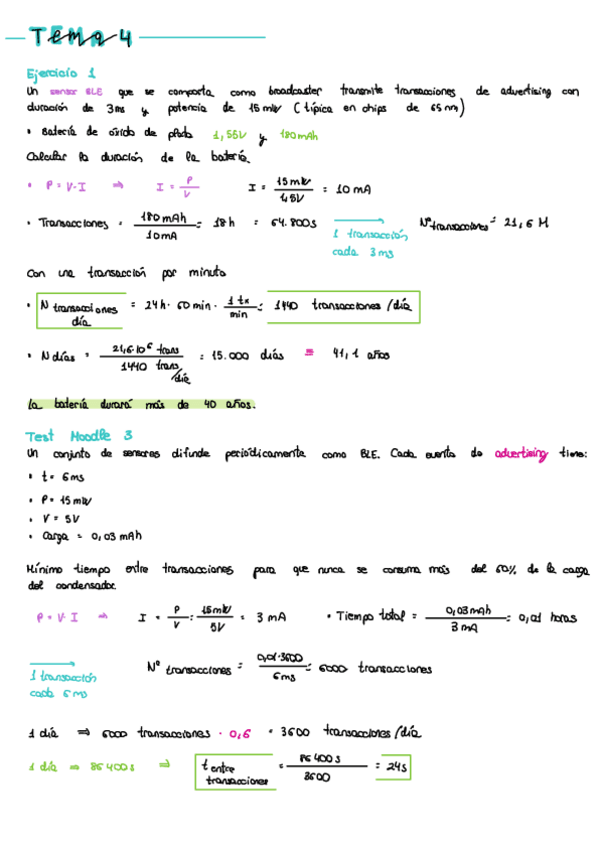 TEMA 4
Ejercicio 1
Un sensor BLE que se comporta como broadcaster transmite transacciones de advertising con
duración de 3ms y potencia de 15mW (típica en chips de 65nm)
• Batería de óxido de plata 1,55V y 180mAh
Calcular la duración de la batería.
• P = V·I ⇒ I = P/V I = 15mW/1,5V = 10 mA
• Transacciones = 180mAh/10mA = 18h = 64.800s → 1 transacción cada 3ms Nº transacciones = 21,6 M
Con una transacción por minuto
• N transacciones día = 24h · 60min · 1 tx/min = 1440 transacciones/día
• N días = 21,6·10⁶ trans/1440 trans/día = 15.000 días = 41,1 años
La batería durará más de 40 años.
Test Moodle 3
Un conjunto de sensores difunde periódicamente como BLE. Cada evento de advertising tiene:
• t = 6ms
• P = 15mW
• V = 5V
• Carga = 0,03 mAh
Mínimo tiempo entre transacciones para que nunca se consuma más del 60% de la carga
del condensador.
P = V·I ⇒ I = P/V = 15mW/5V = 3 mA • Tiempo total = 0,03mAh/3mA = 0,01 horas
→ 1 transacción cada 6ms Nº transacciones = 0,01·3600/6ms = 6000 transacciones
1 día ⇒ 6000 transacciones · 0,6 = 3600 transacciones/día
1 día ⇒ 86400s ⇒ t entre transacciones = 86400s/3600 = 24s